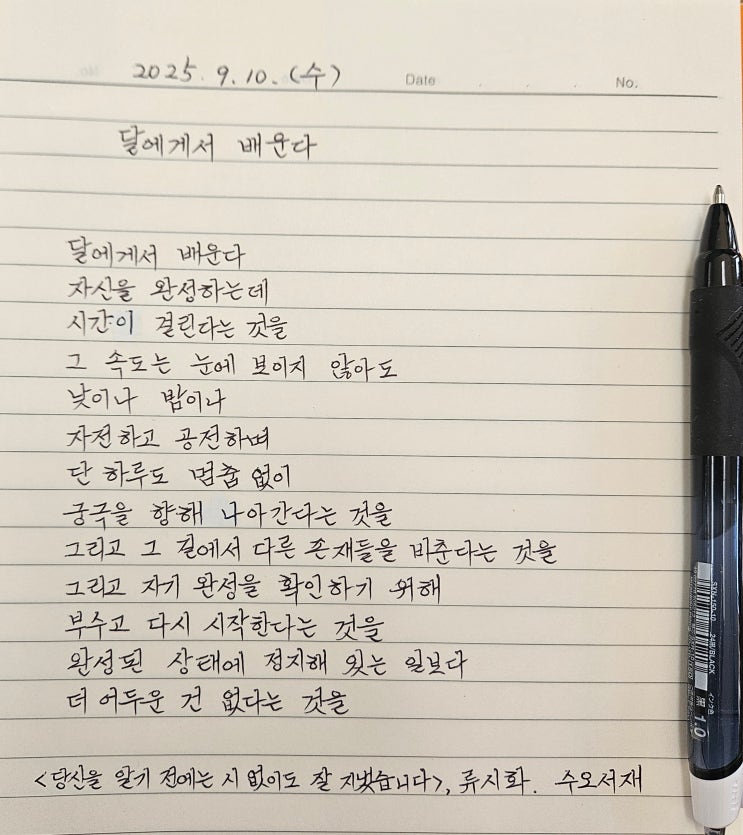 2025. 9. 10. (수)
Date
No.
달에게서 배운다
달에게서 배운다
자신을 완성하는데
시간이 걸린다는 것을
그 속도는 눈에 보이지 않아도
낮이나 밤이나
자전하고 공전하며
단 하루도 멈춤 없이
궁극을 향해 나아간다는 것을
그리고 그 길에서 다른 존재들을 비춘다는 것을
그리고 자기 완성을 확인하기 위해
부수고 다시 시작한다는 것을
완성된 상태에 정지해 있는 일보다
더 어두운 건 없다는 것을
<당신을 알기 전에는 시 없이도 잘 지냈습니다>, 류시화. 수오서재
SXN-150-10
24B/BLACK
インク色
黒 1.0